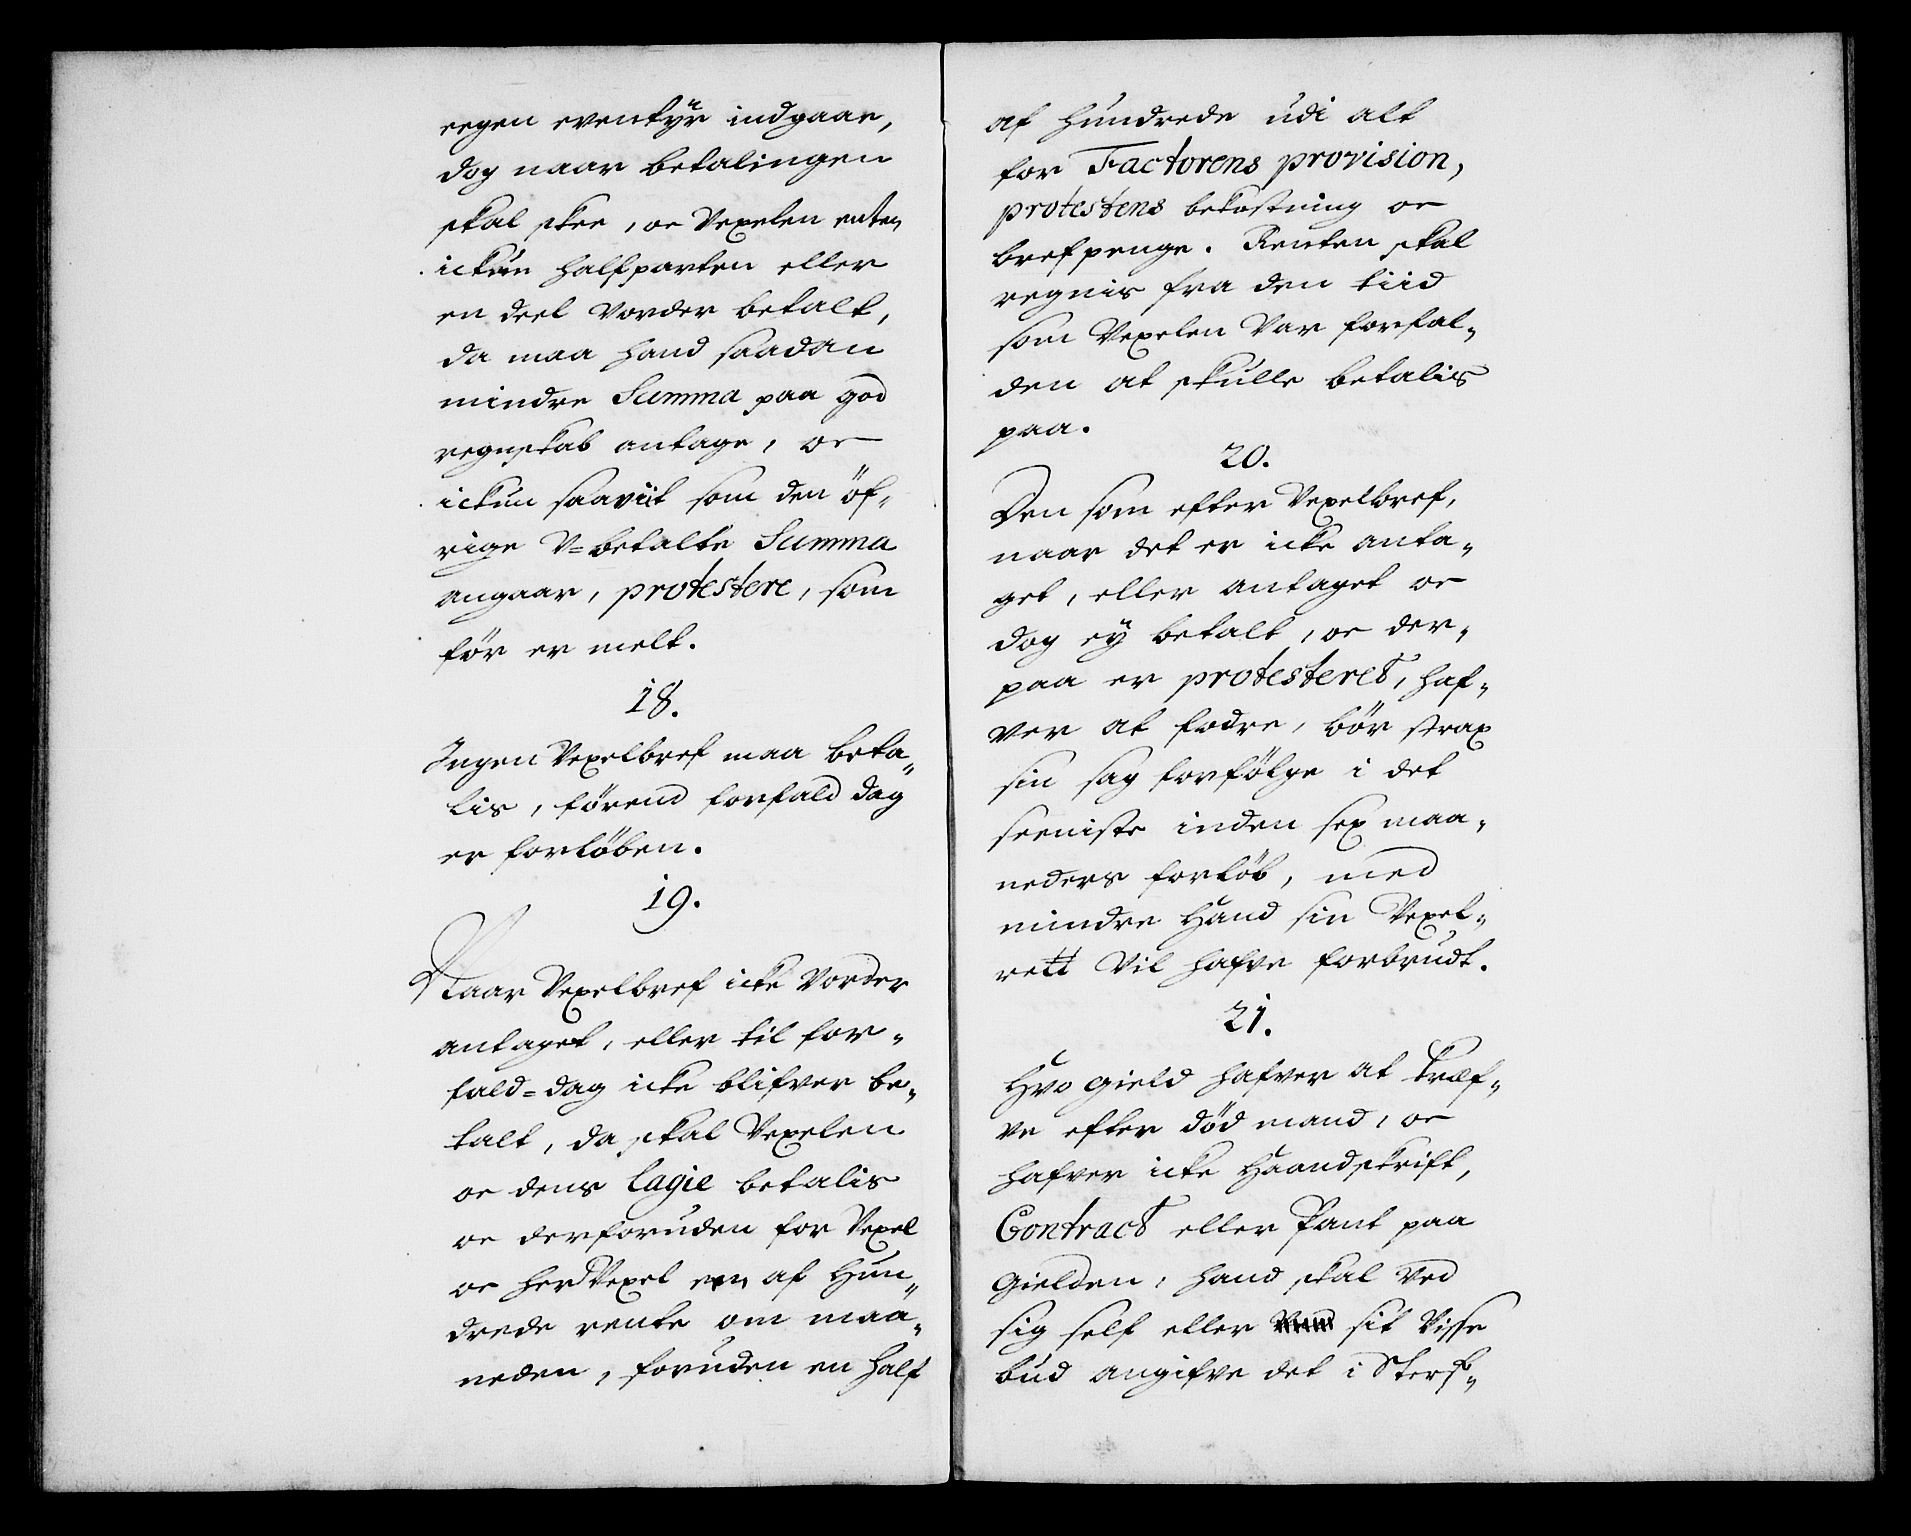 eegen eventyr indgaae,
dog naar betalingen
skal skee, oc Vexelen enten
ickun halfparten eller
en deel vorder betalt,
da maa hand saadan
mindre Summa paa god
regnskab antage, oc
ickun saaviit som den öf-
rige V=betalte Summa
angaar, protestere, som
för er melt.
18.
Ingen Vexelbref maa beta-
lis, förend forfald dag
er forlöben.
19.
Naar Vexelbref icke vorder
antaget, eller til for-
fald=dag icke blifver be-
talt, da skal Vexelen
oc dens lagie betalis
oc derforuden for Vexel
oc her Vexel een af Hun-
drede rente om maa-
neden, foruden en half
af hundrede udi alt
for Factorens provision,
protestens bekostning oc
brefpenge. Renten skal
regnis fra den tiid
som Vexelen var forfal-
den at skulle betalis
paa.
20.
Den som efter Vexelbref,
naar det er icke anta-
get, eller antaget oc
dog ey betalt, oc der-
paa er protesteret, haf-
ver at fodre, bör strax
sin sag forfölge i det
seeniste inden sex maa-
neders forlöb, med
mindre Hand sin Vexel-
rett vil hafve forbrudt.
21.
Hvo gield hafver at kræf-
ve efter död mand, oc
hafver icke Haandskrift,
Contract eller Pant paa
Gielden, hand skal ved
sig self eller sit visse
bud angifve det i Sterf-